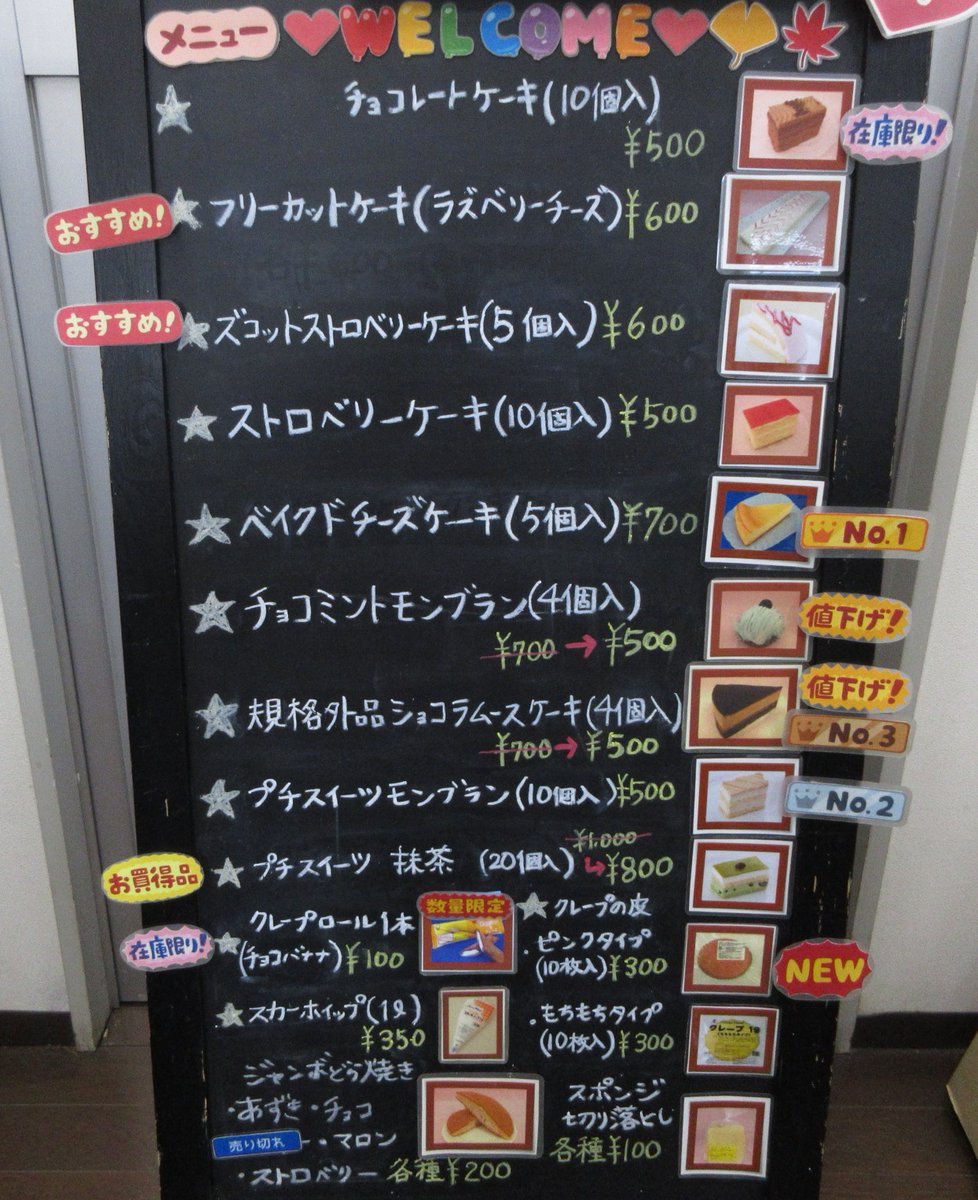 メニュー WELCOME
チョコレートケーキ(10個入)
¥500
在庫限り!
おすすめ!
フリーカットケーキ(ラズベリーチーズ)¥600
おすすめ!
ズコットストロベリーケーキ(5個入)¥600
ストロベリーケーキ(10個入)¥500
ベイクドチーズケーキ(5個入)¥700
No.1
チョコミントモンブラン(4個入)
¥700→¥500
値下げ!
規格外品ショコラムースケーキ(4個入)
¥700→¥500
値下げ!
No.3
プチスイーツモンブラン(10個入)¥500
No.2
お買得品
プチスイーツ 抹茶 (20個入)
¥1.000
↳¥800
在庫限り!
クレープロール1本
(チョコバナナ)¥100
数量限定
クレープの皮
・ピンクタイプ
(10枚入)¥300
NEW
・もちもちタイプ
(10枚入)¥300
スカーホイップ(1ℓ)
¥350
ジャンボどら焼き
・あずき・チョコ
売り切れ
ー・マロン
・ストロベリー 各種¥200
スポンジ
切り落とし
各種¥100